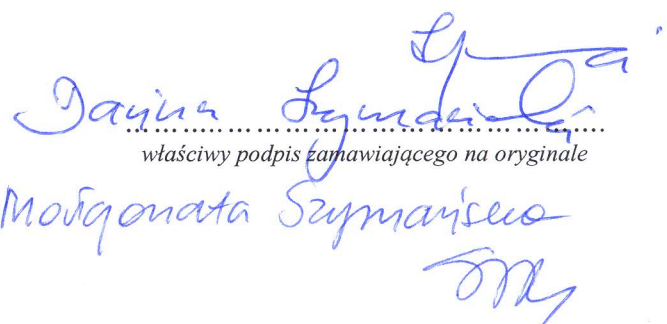 Janina Szymańska
....................................................................
właściwy podpis zamawiającego na oryginale
Małgorzata Szymańska